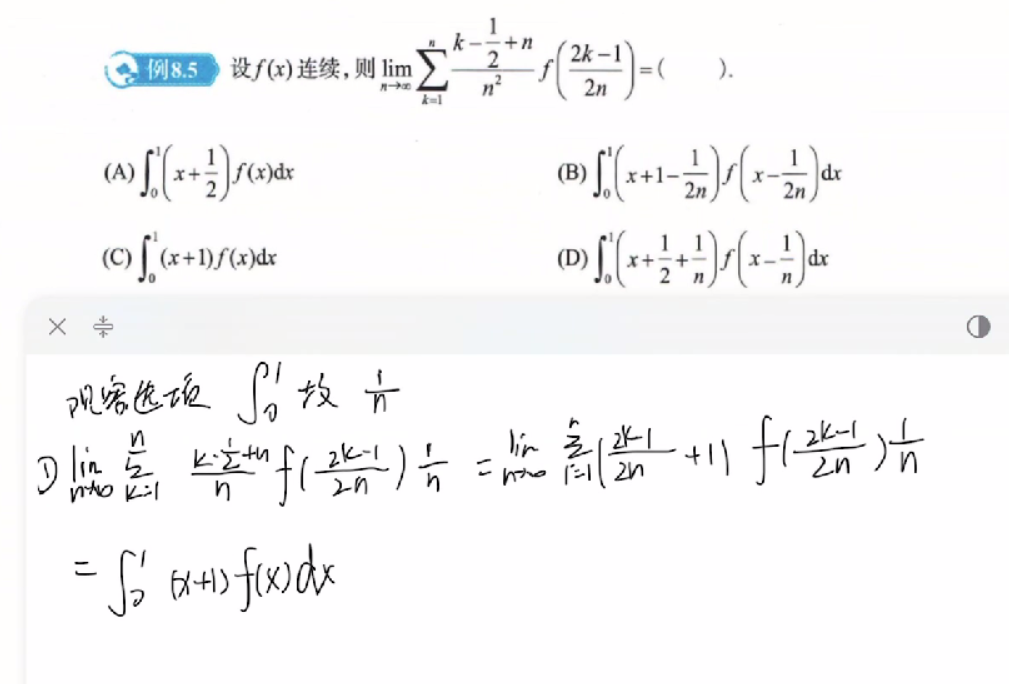 例8.5 设f(x)连续,则 lim_{n→∞} ∑_{k=1}^{n} (k-1/2+n)/n² f((2k-1)/(2n)) = (  ).
(A) ∫₀¹ (x+1/2) f(x)dx (B) ∫₀¹ (x+1-1/(2n)) f(x-1/(2n)) dx
(C) ∫₀¹ (x+1) f(x)dx (D) ∫₀¹ (x+1/2+1/n) f(x-1/n) dx
观察选项 ∫₀¹ 故 1/n
① lim_{n→∞} ∑_{k=1}^{n} (k-1/2+n)/n f((2k-1)/(2n)) 1/n = lim_{n→∞} ∑_{i=1}^{n} ((2k-1)/(2n) +1) f((2k-1)/(2n)) 1/n
= ∫₀¹ (x+1) f(x) dx